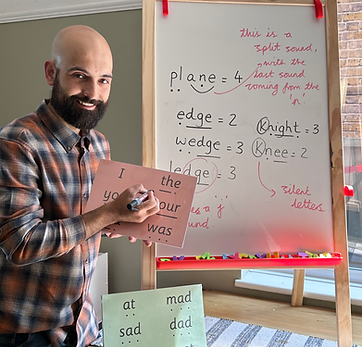 this is a
split sound,
with the
last sound
coming from the
'n'
plane = 4
edge = 2
wedge = 3
ledge = 3
Knight = 3
Knee = 2
silent
letters
a j
sound
I the
you our
was
at mad
sad dad